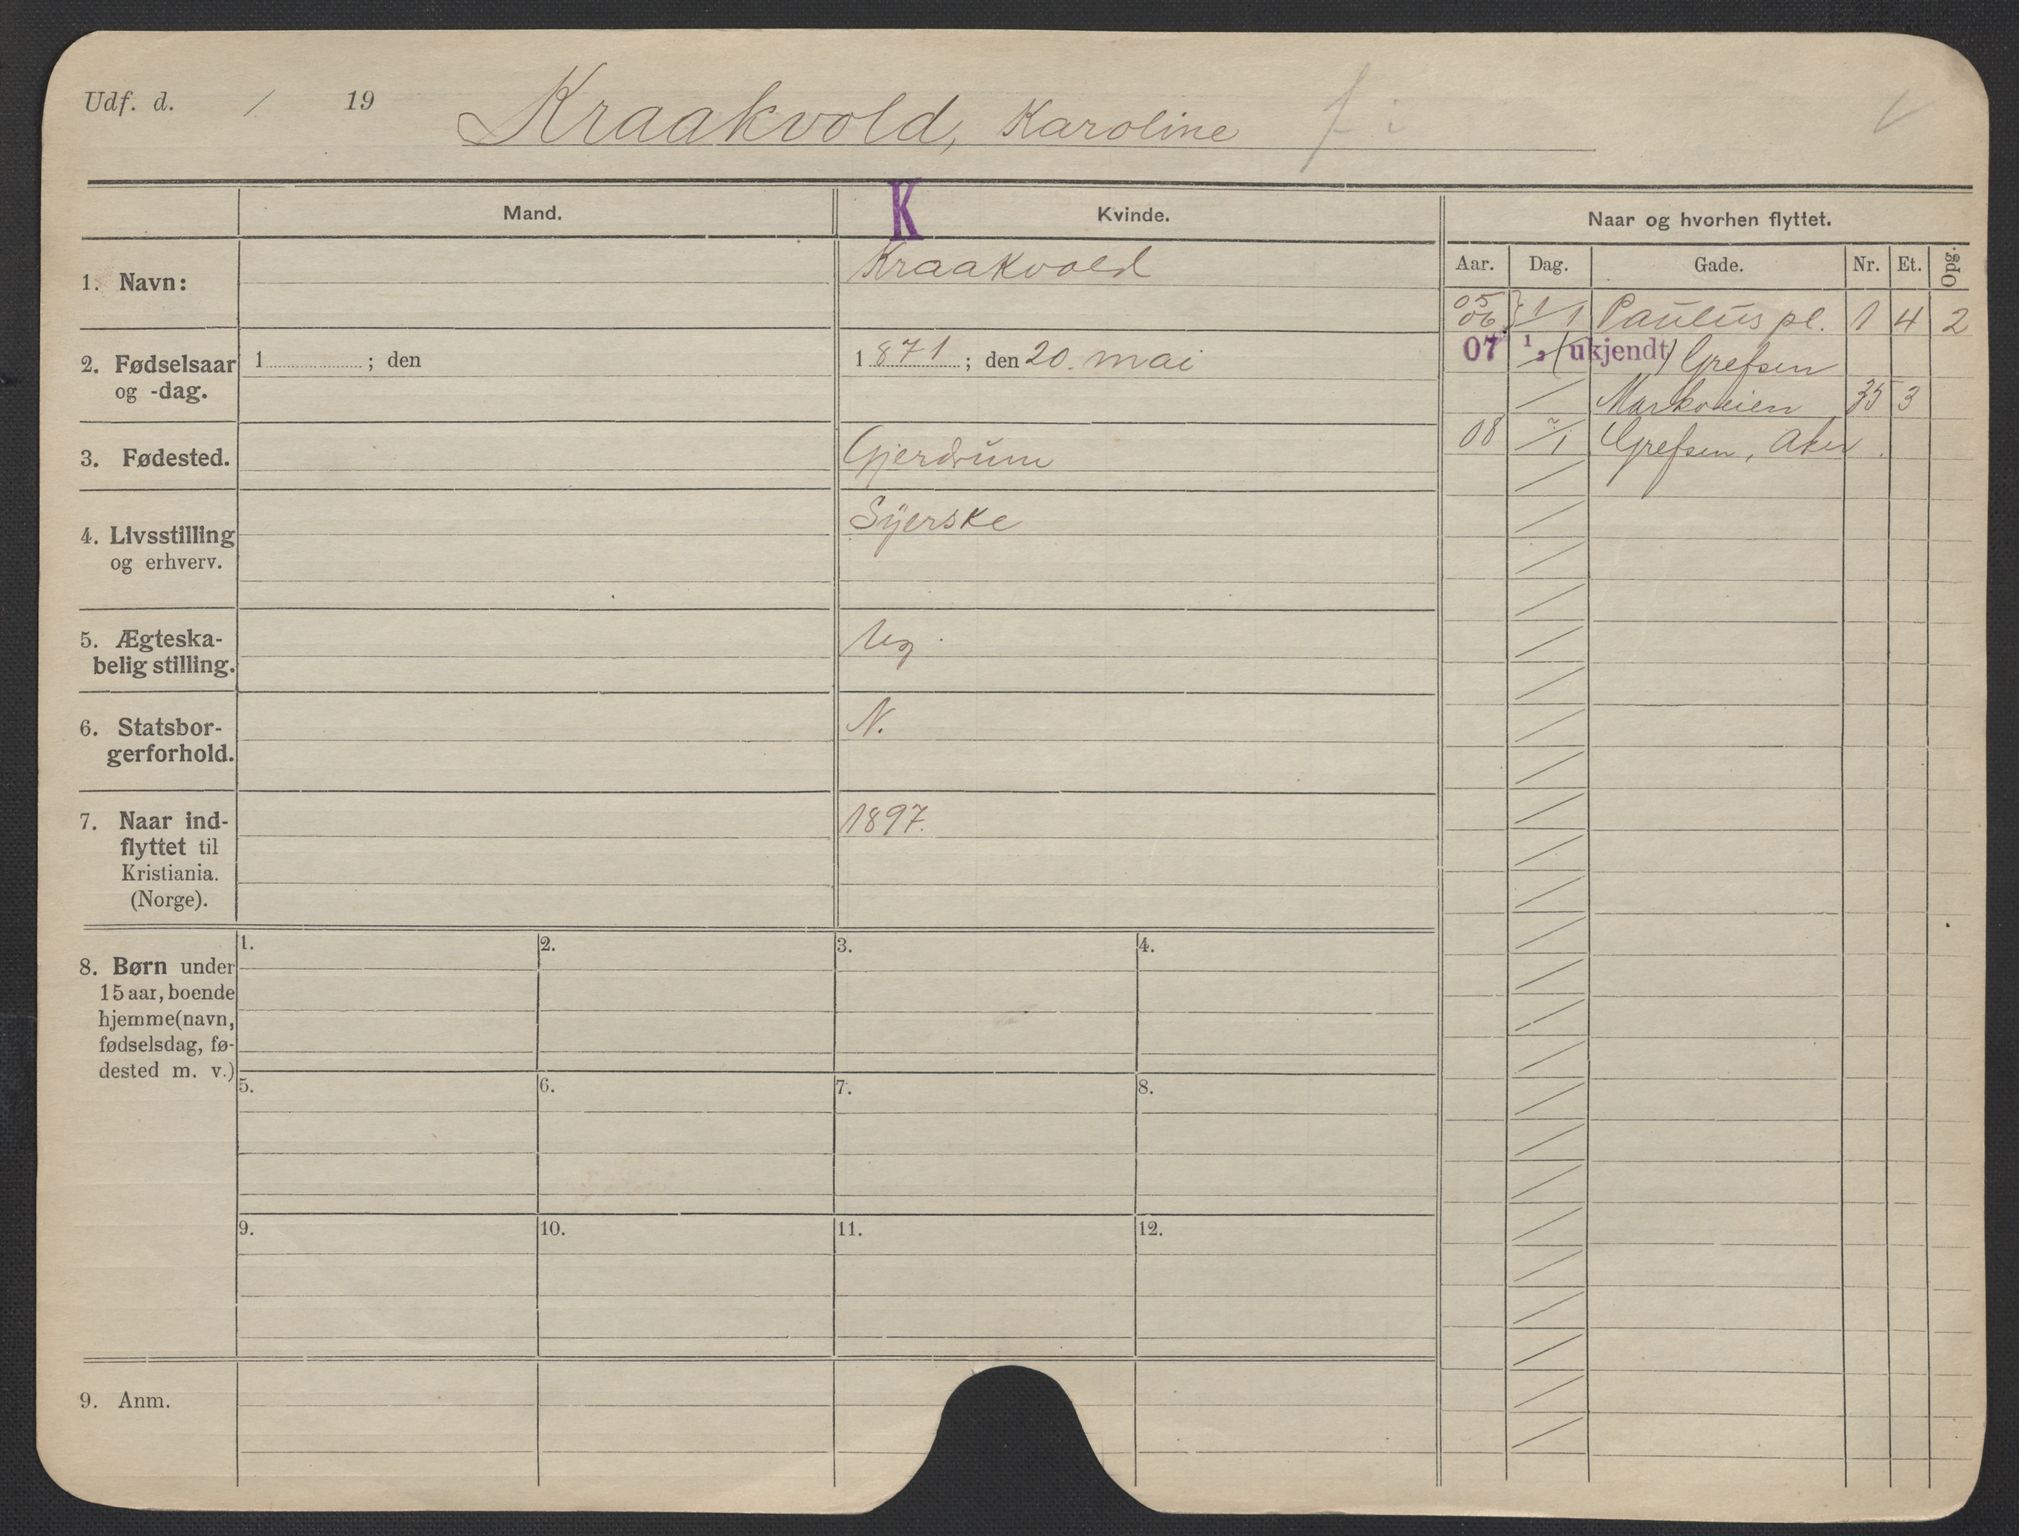 Udf. d. / 19
Kraakvold, Karoline
K
Mand.
Kvinde.
Naar og hvorhen flyttet.
Aar. Dag. Gade. Nr. Et. Opg.
1. Navn:
Kraakvold
2. Fødselsaar
og -dag.
1 ; den
1871; den 20. mai
3. Fødested.
Gjerdrum
4. Livsstilling
og erhverv.
Syerske
5. Ægteska-
belig stilling.
Ug.
6. Statsbor-
gerforhold.
N.
7. Naar ind-
flyttet til
Kristiania.
(Norge).
1897.
8. Børn under
15 aar, boende
hjemme (navn,
fødselsdag, fø-
dested m. v.)
1. 2. 3. 4.
5. 6. 7. 8.
9. 10. 11. 12.
9. Anm.
05
06 } 1/1 Paulus pl. 1 4 2
07 (ukjendt) Grefsen
Markveien 35 3
08 Grefsen, Aker.